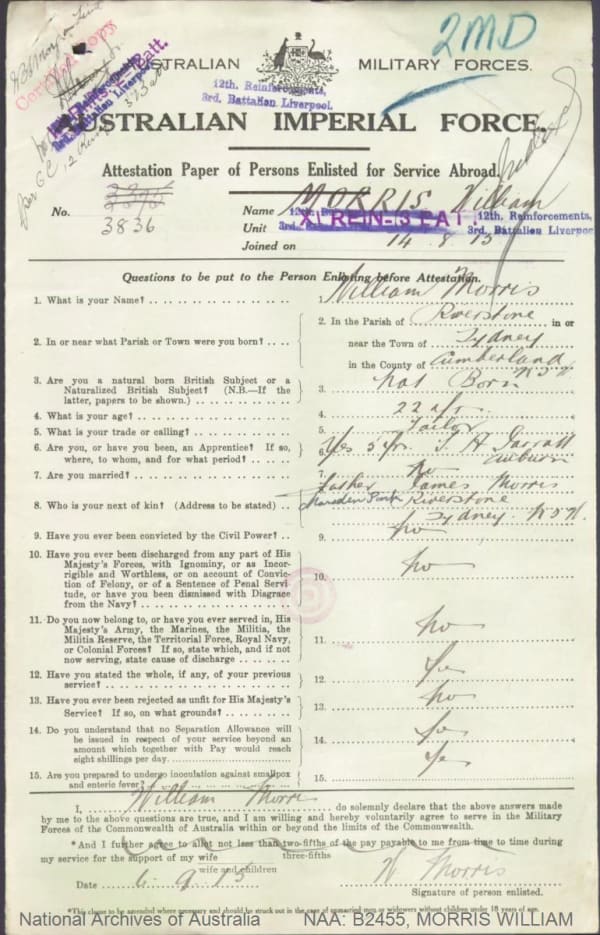 2MD
Certified Copy
AUSTRALIAN MILITARY FORCES.
12th. Reinforcements,
3rd. Battalion Liverpool.
AUSTRALIAN IMPERIAL FORCE.
Attestation Paper of Persons Enlisted for Service Abroad.
No. 3836
Name MORRIS William
Unit XI REIN-3 BATT 12th. Reinforcements, 3rd. Battalion Liverpool
Joined on 14 . 8 . 15
Questions to be put to the Person Enlisting before Attestation.
1. What is your Name? 1. William Morris
2. In or near what Parish or Town were you born? 2. In the Parish of Riverstone in or
near the Town of Sydney
in the County of Cumberland NSW
3. Are you a natural born British Subject or a
Naturalized British Subject? (N.B.—If the
latter, papers to be shown.) 3. Nat Born
4. What is your age? 4. 22
5. What is your trade or calling? 5. Tailor
6. Are you, or have you been, an Apprentice? If so,
where, to whom, and for what period? 6. Yes 5 yrs Auburn
7. Are you married? 7. No
8. Who is your next of kin? (Address to be stated) Father James Morris
Marsden Park Riverstone
Sydney. NSW.
9. Have you ever been convicted by the Civil Power? 9. No
10. Have you ever been discharged from any part of His
Majesty's Forces, with Ignominy, or as Incor-
rigible and Worthless, or on account of Convic-
tion of Felony, or of a Sentence of Penal Servi-
tude, or have you been dismissed with Disgrace
from the Navy? 10. No
11. Do you now belong to, or have you ever served in, His
Majesty's Army, the Marines, the Militia, the
Militia Reserve, the Territorial Force, Royal Navy,
or Colonial Forces? If so, state which, and if not
now serving, state cause of discharge 11. No
12. Have you stated the whole, if any, of your previous
service? 12. Yes
13. Have you ever been rejected as unfit for His Majesty's
Service? If so, on what grounds? 13. No
14. Do you understand that no Separation Allowance will
be issued in respect of your service beyond an
amount which together with Pay would reach
eight shillings per day 14. Yes
15. Are you prepared to undergo inoculation against smallpox
and enteric fever? 15. Yes
I, William Morris do solemnly declare that the above answers made
by me to the above questions are true, and I am willing and hereby voluntarily agree to serve in the Military
Forces of the Commonwealth of Australia within or beyond the limits of the Commonwealth.
*And I further agree to allot not less than two-fifths of the pay payable to me from time to time during
three-fifths
my service for the support of my wife
wife and children
Date 6 . 9 . 15 W Morris
Signature of person enlisted.
*This clause to be amended where necessary and should be struck out in the case of unmarried men or widowers without children under 18 years of age.
National Archives of Australia NAA: B2455, MORRIS WILLIAM